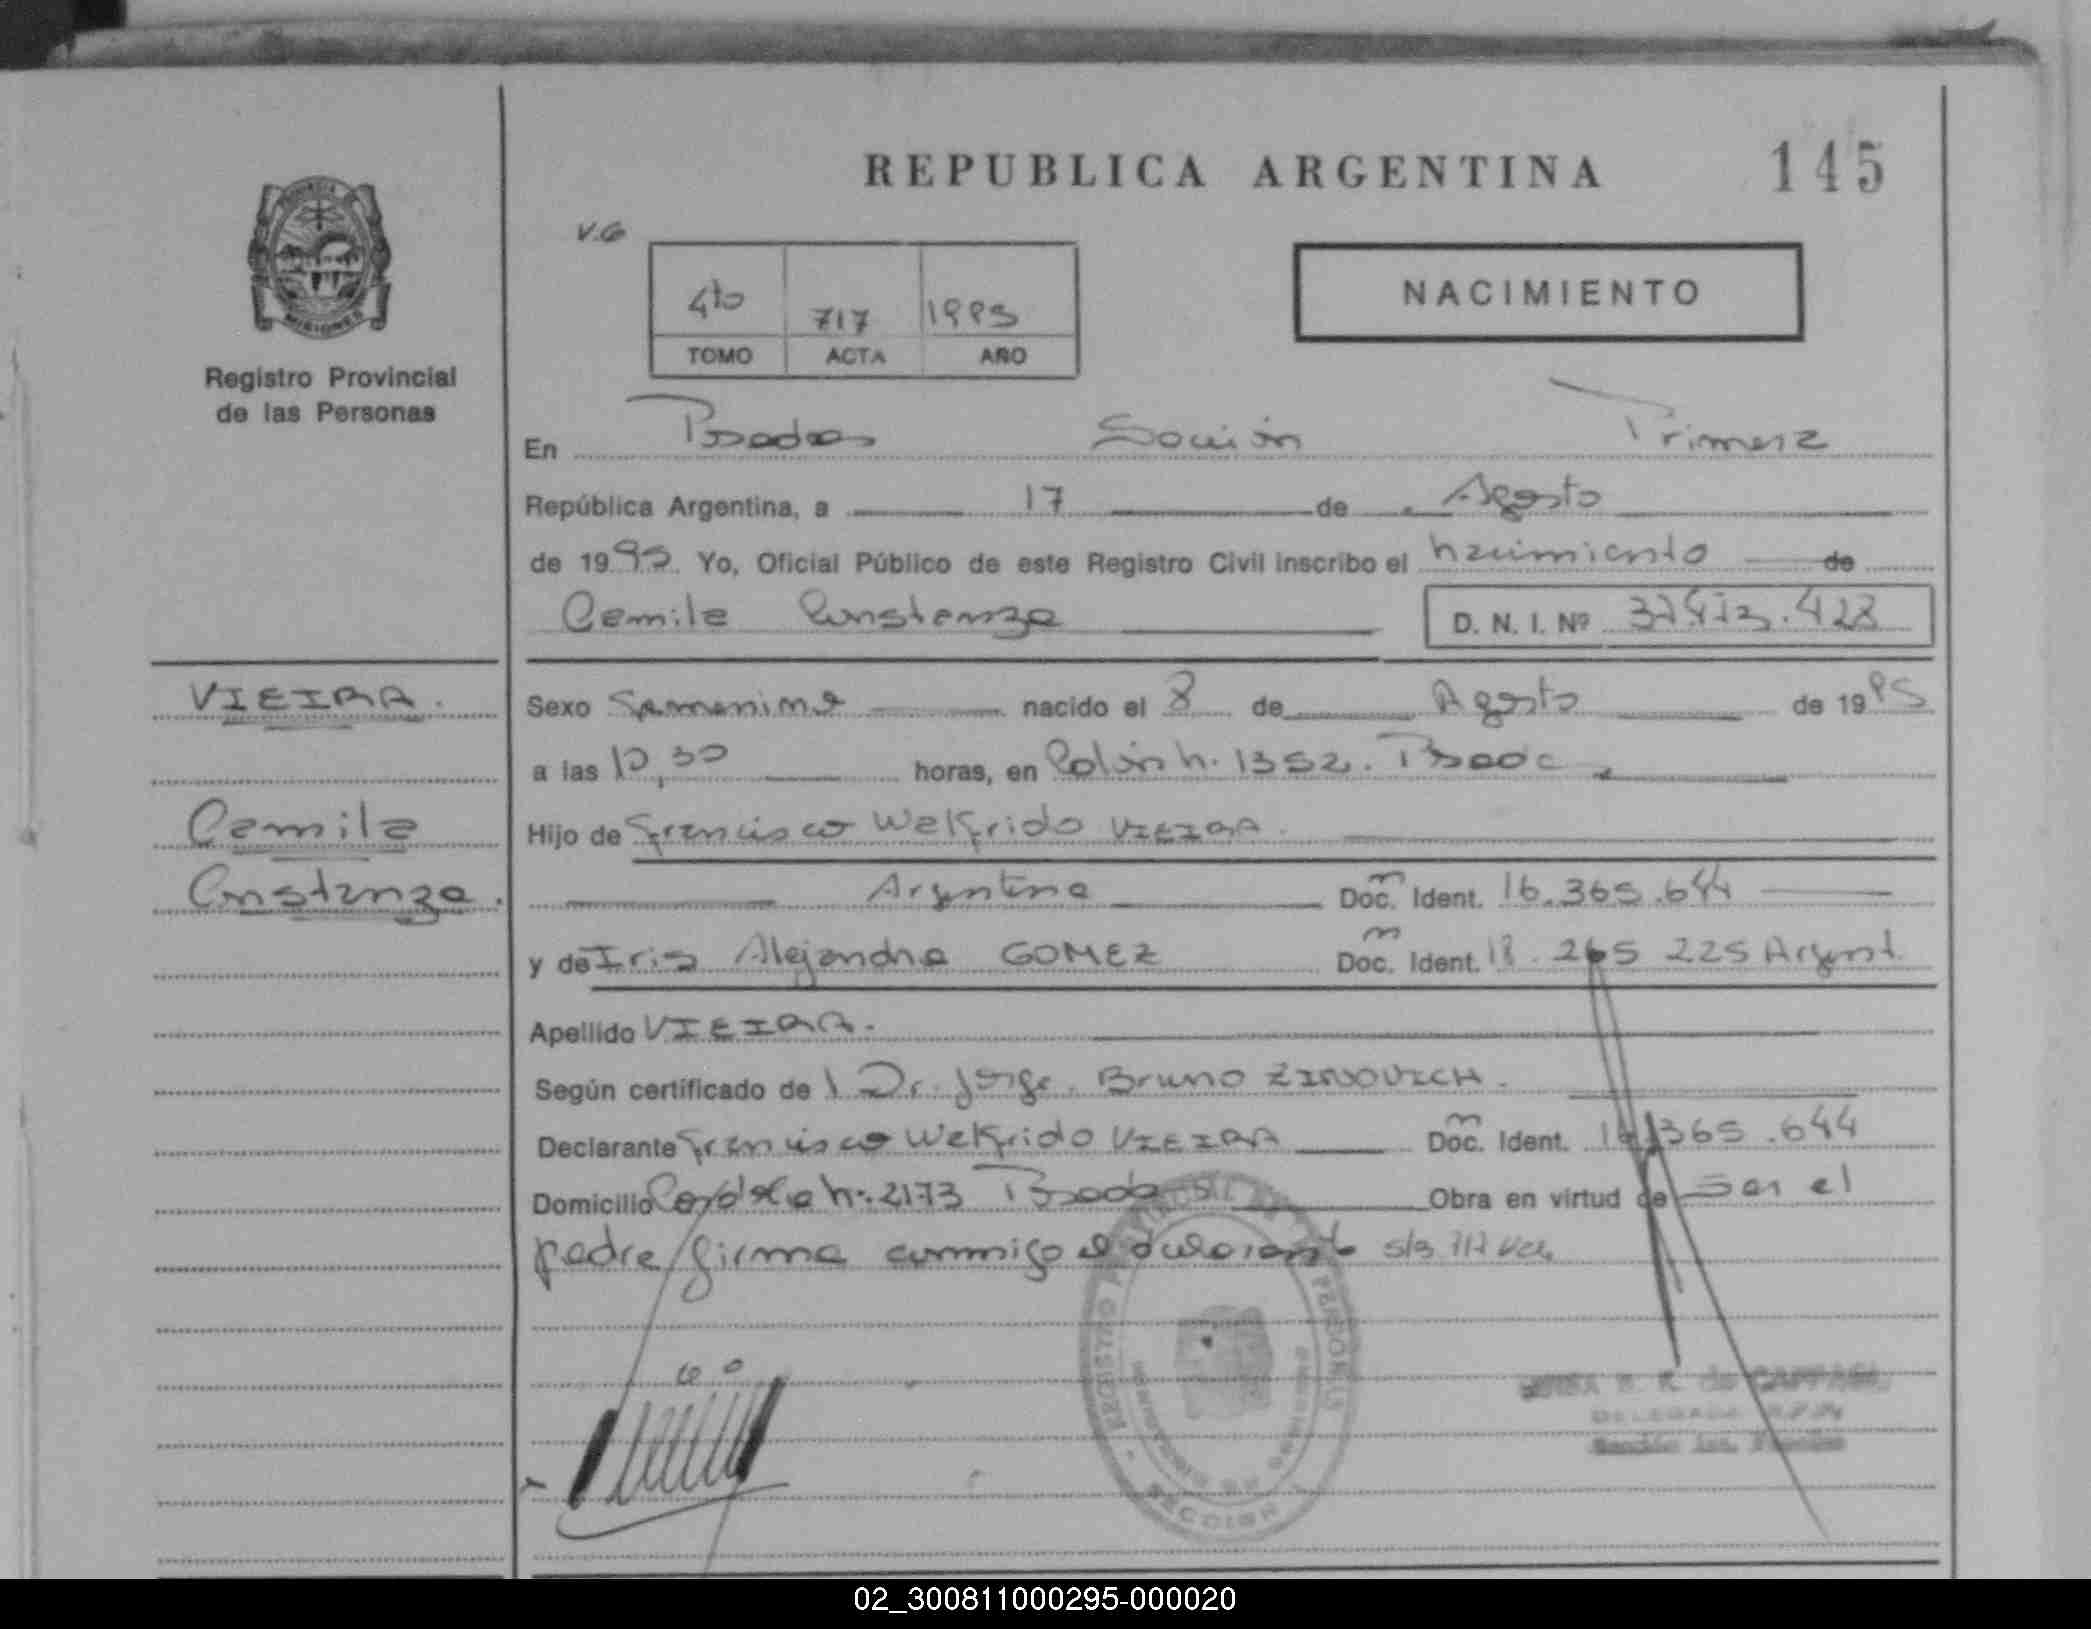 REPUBLICA ARGENTINA
145
V.G
4to 717 1995
TOMO ACTA AÑO
NACIMIENTO
MISIONES
Registro Provincial
de las Personas
En Posadas Sección Primera
República Argentina, a 17 de Agosto
de 1995 Yo, Oficial Público de este Registro Civil inscribo el nacimiento de
Camila Constanza D. N. I. Nº
VIEIRA.
Sexo Femenino nacido el 8 de Agosto de 1995
a las 10,30 horas, en Colón N. 1352. Posadas
Camila
Hijo de Francisco Welfrido VIEIRA.
Constanza.
Argentina Doc. Ident. 16.365.644
y de Iris Alejandra GOMEZ Doc. Ident. 18.265 225 Argent.
Apellido VIEIRA.
Según certificado de Dr. Jorge Bruno ZINOVICH.
Declarante Francisco Welfrido VIEIRA Doc. Ident. 16.365.644
Domicilio Nº 2173 Posadas Obra en virtud de Ser el
padre firma conmigo el declarante
REGISTRO PROVINCIAL DE LAS PERSONAS
SECCION 1
02_300811000295-000020